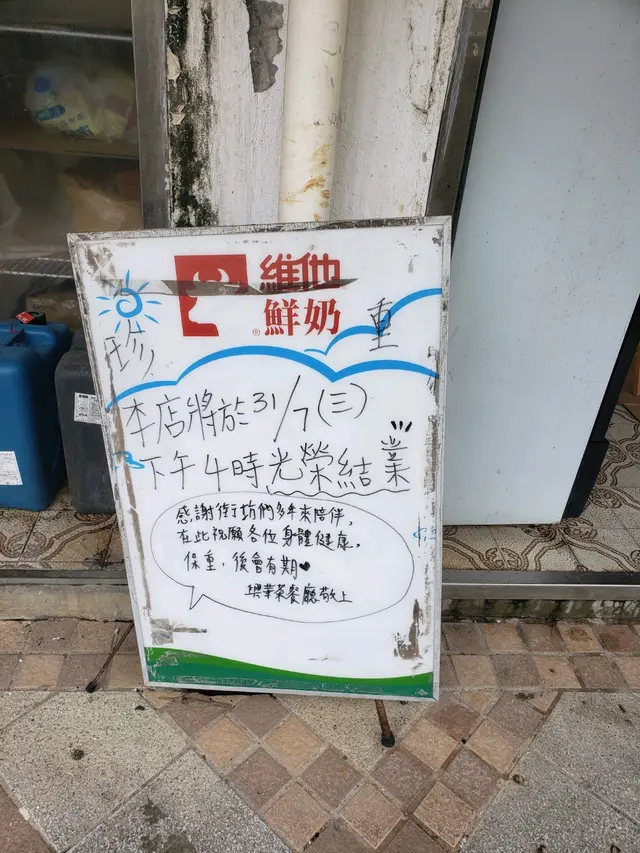 維他
®鮮奶
珍重
本店將於31/7(三)
下午4時光榮結業
感謝街坊們多年來陪伴,
在此祝願各位身體健康,
保重,後會有期♥
興業茶餐廳敬上